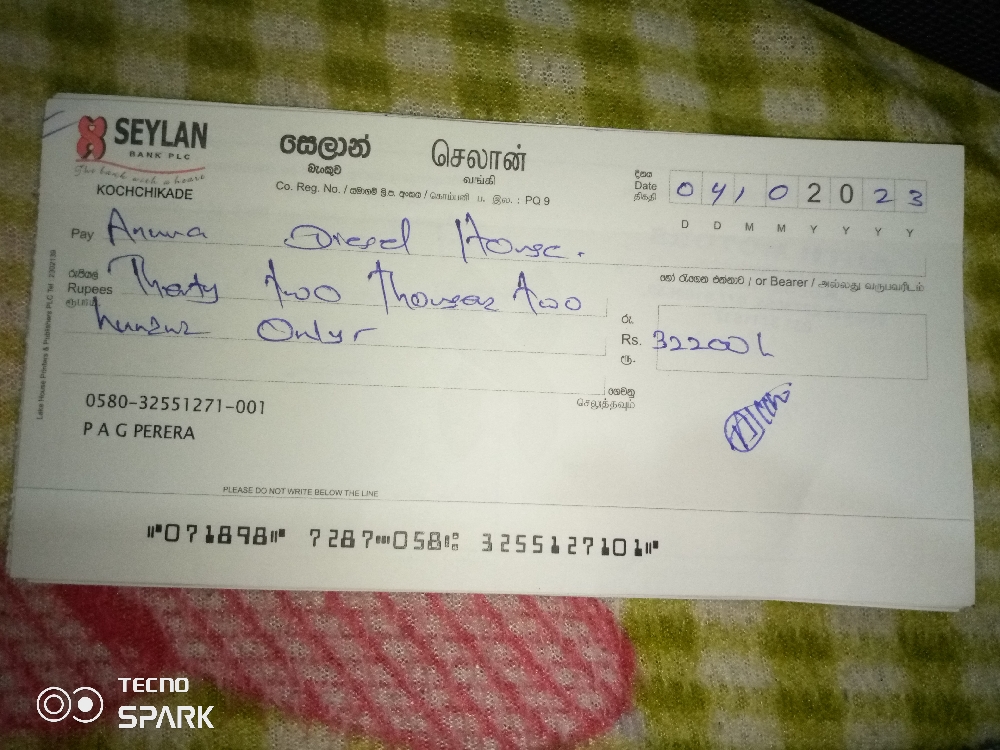 SEYLAN
BANK PLC
The bank with a heart
KOCHCHIKADE
සෙලාන්
බැංකුව
செலான்
வங்கி
Co. Reg. No. / සමාගම් ලි.ප. අංකය / கொம்பனி ப. இல. : PQ 9
දිනය
Date
திகதி
04 1 0 2 0 2 3
D D M M Y Y Y Y
Pay Anura Diesel House.
හෝ රැගෙන එන්නාට / or Bearer / அல்லது வருபவரிடம்
රුපියල්
Rupees Therty Two Thousan Two
ரூபாய்
hundud Only
රු.
Rs. 32200
ரூ.
ගෙවනු
செலுத்தவும்
0580-32551271-001
P A G PERERA
PLEASE DO NOT WRITE BELOW THE LINE
⑈071898⑈ 7287⑉058⑆ 3255127101⑈
Lake House Printers & Publishers PLC Tel
TECNO
SPARK